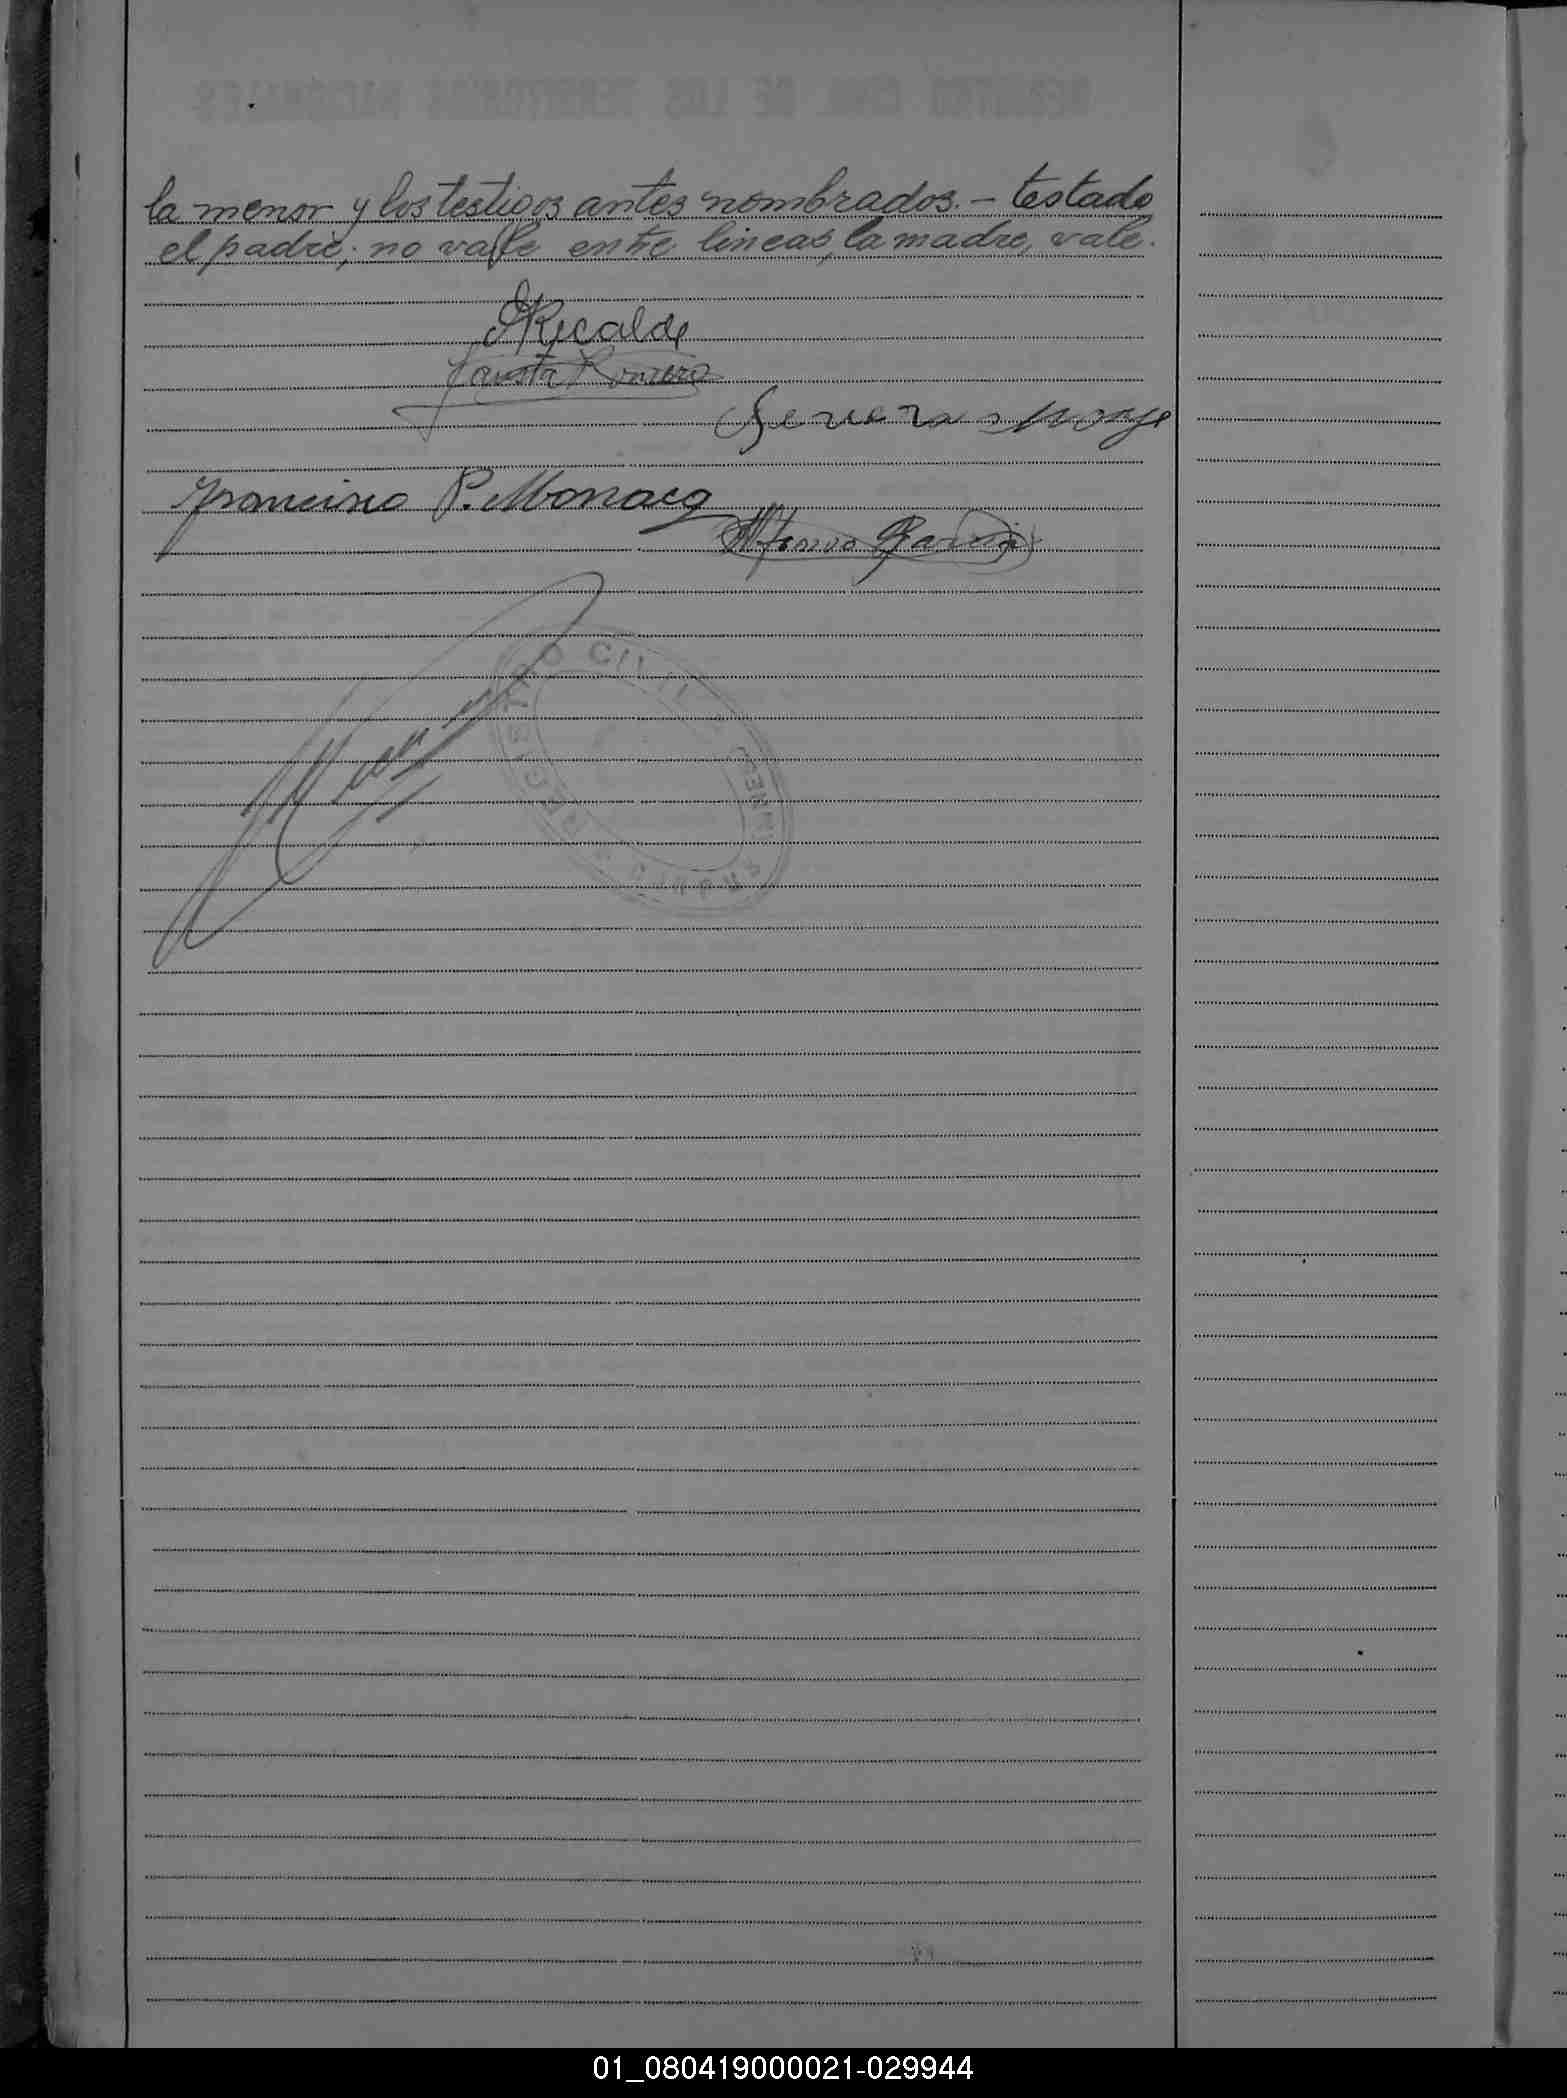 la menor y los testigos antes nombrados. - testado
el padre; no vale entre lineas, la madre, vale.
Ricalde
Fausta Romero
Genera Monge
Francisco P. Monaco
Alfonso Garcia
REGISTRO CIVIL
01_080419000021-029944